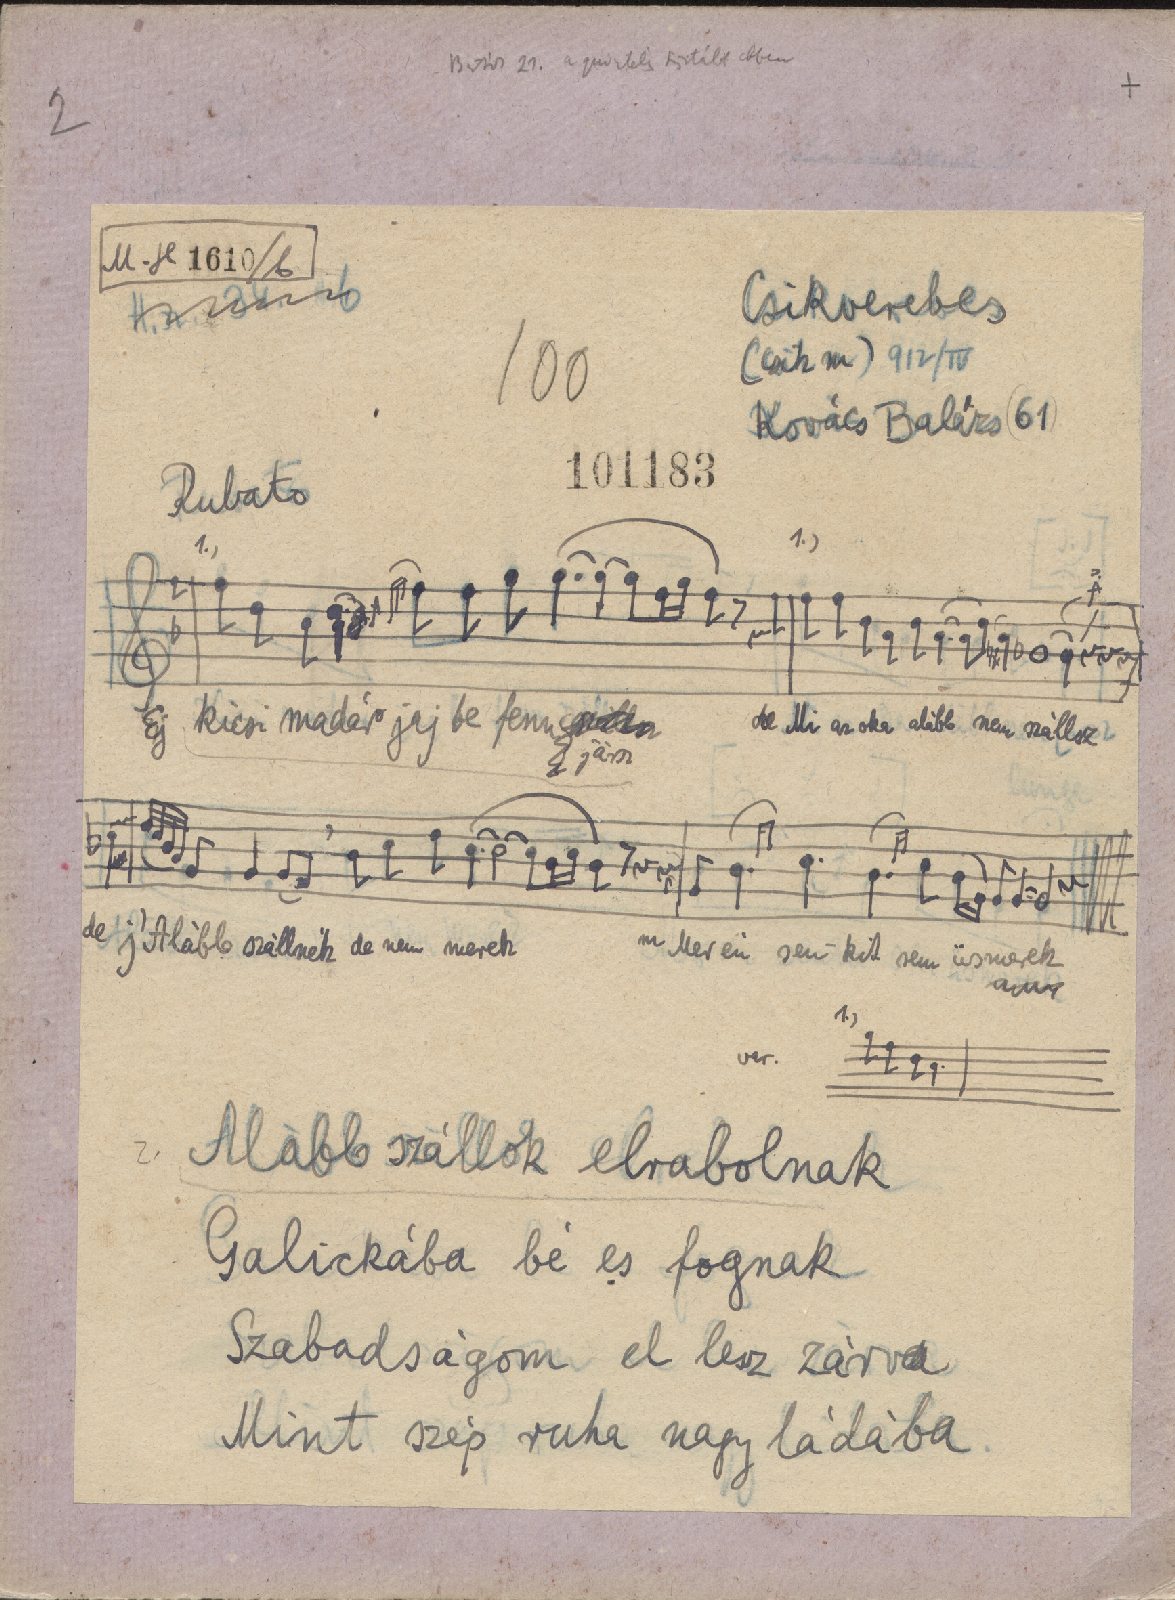 21.
+
2
M.H 1610/b
Csikverebes
(Csik m) 912/IV
100
Kovács Balázs (61)
101183
Rubato
1.,
1.,
Ej kicsi madár jaj be fenn
de Mi az oka alább nem szállsz
jársz
de j' Alább szállnék de nem merek
m Mer én sen-kit sem üsmerek
1.,
var.
2. Alább szállok elrabolnak
Galickába bé es fognak
Szabadságom el lesz zárva
Mint szép ruha nagy ládába.